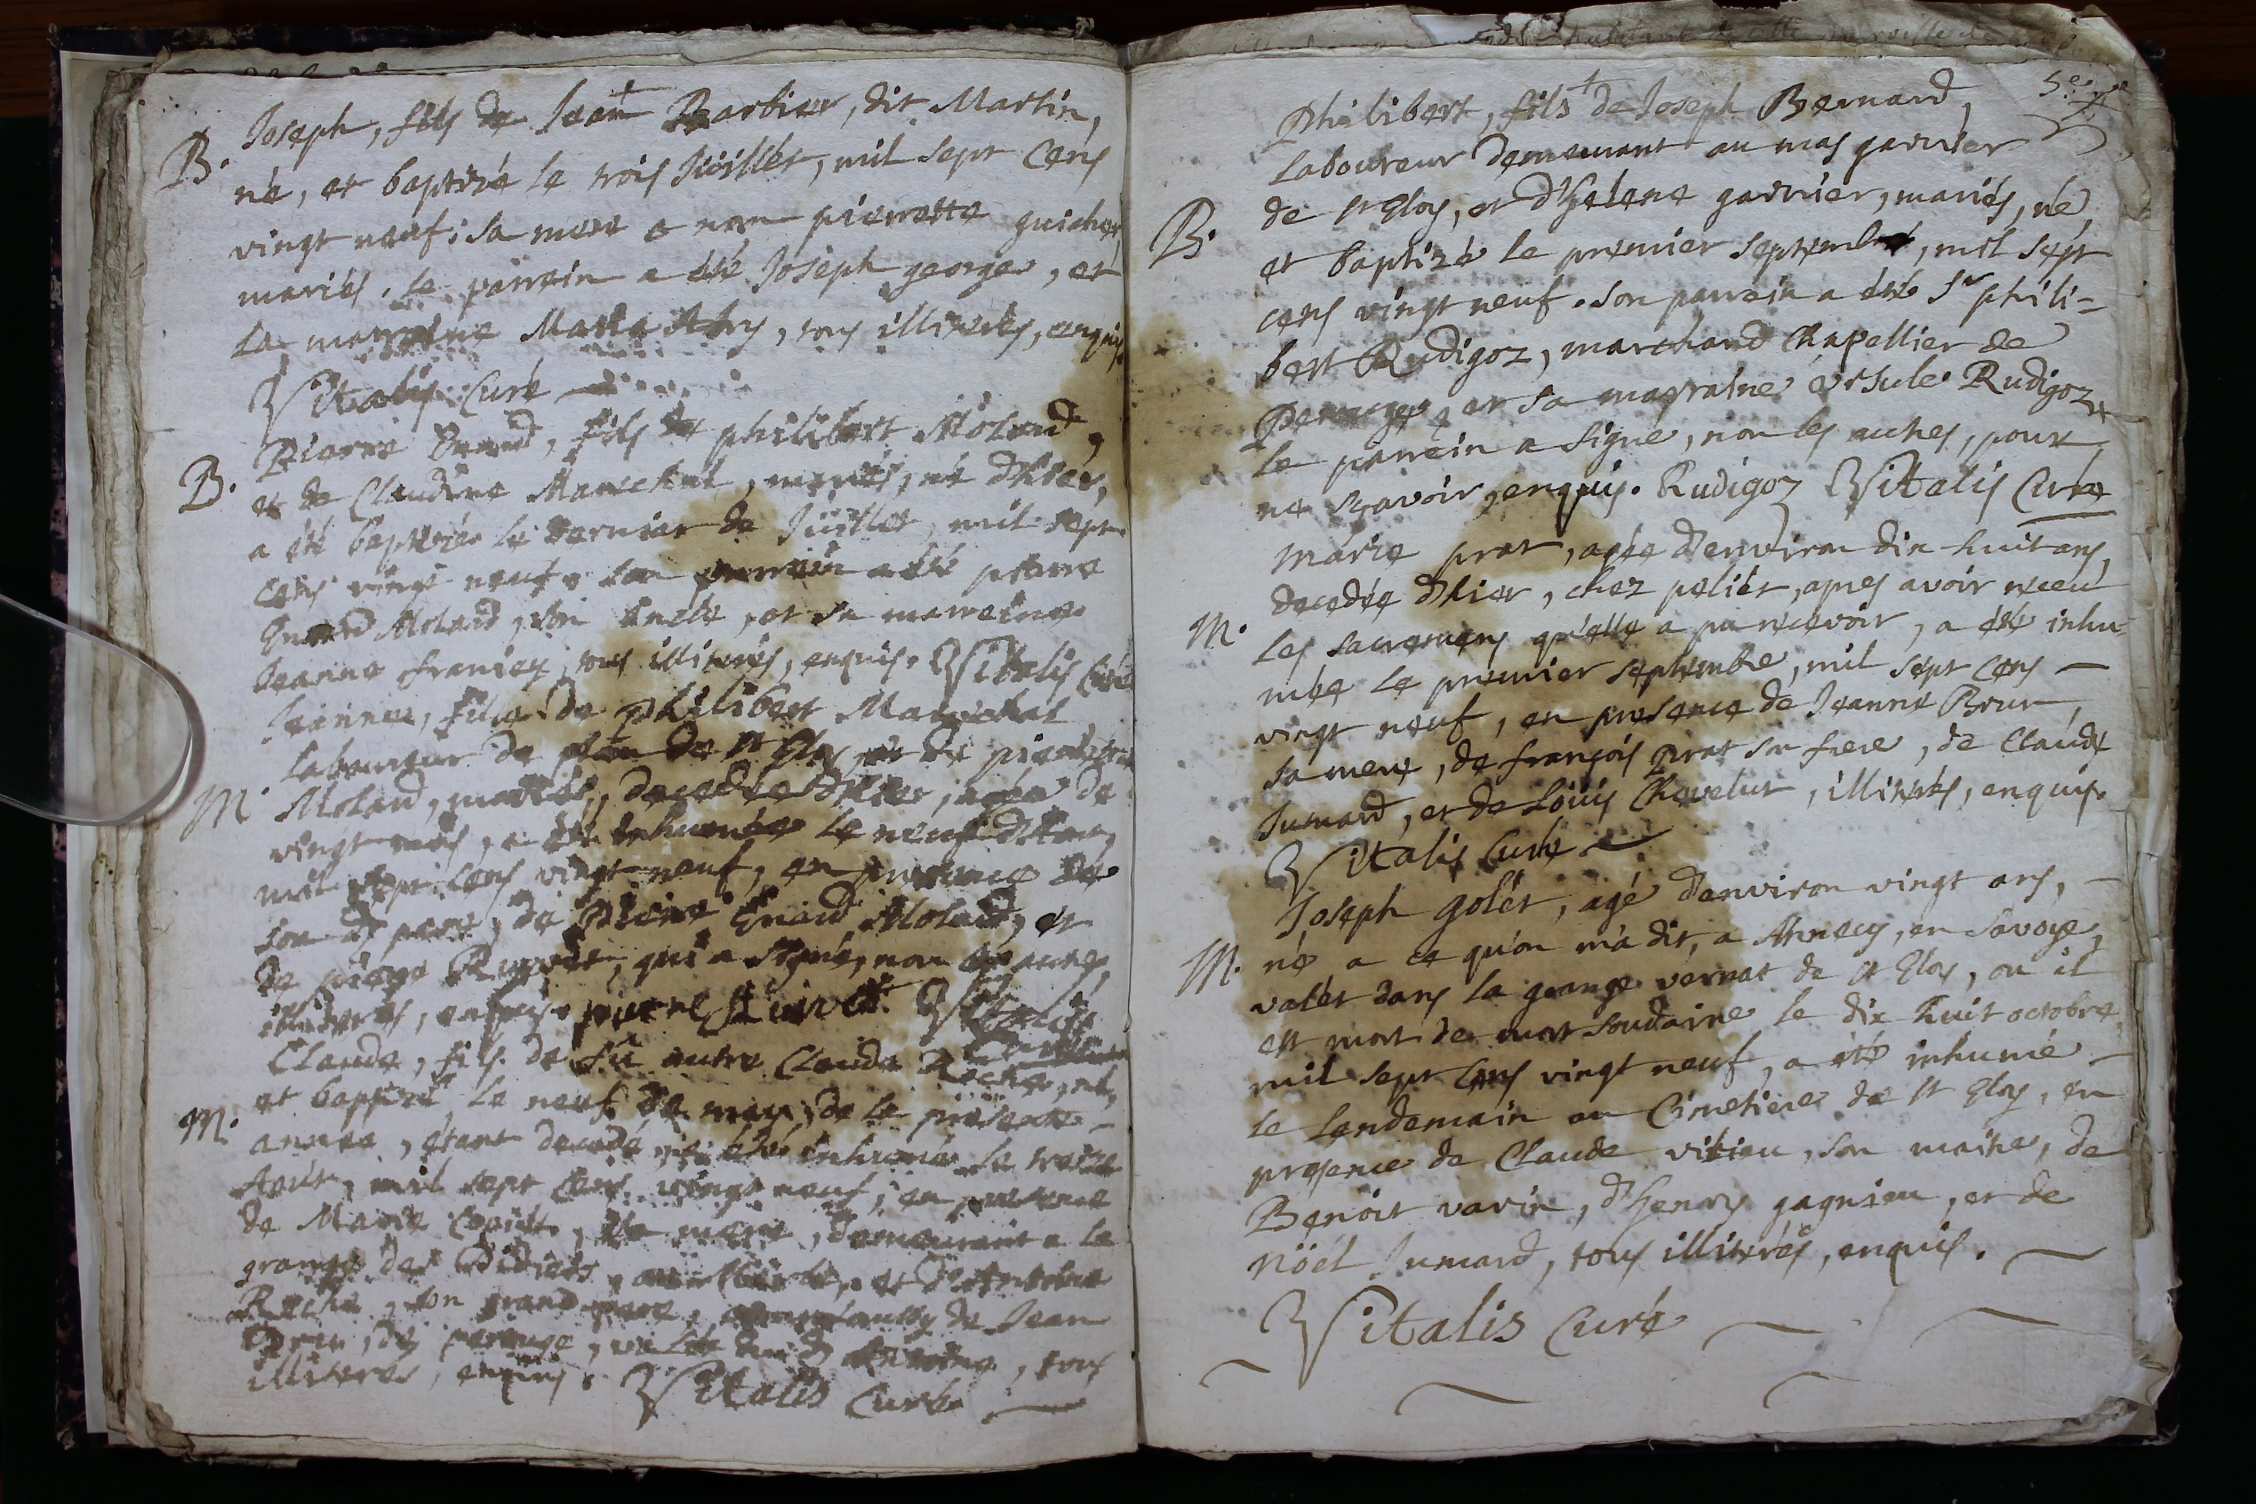 B. Joseph, fils de Jean Barbier, dit Martin,
né, et baptizé le trois Juillet, mil sept cens
vingt neuf: sa mere a nom pierrette guichon
mariés. le parrein a été Joseph george, et
la marreine Marie, tous illiterés, enquis.
Vitalis Curé
B. Pierre Enard, fils de philibert Molard,
et de Claudine Marechal, mariés, né d'hier,
a été baptizé le dernier de Juillet, mil sept
cens vingt neuf. son parrein a été pierre
Enard Molard, son oncle, et sa marreine
Jeanne, tous illiterés, enquis. Vitalis Curé
Jeanne, fille de Philibert Marechal
laboureur de de st Eloy et de
M. Molard, mariés, decedée d'hier, agée de
vingt mois, a été inhumée le neuf d'Aout,
mil sept cens vingt neuf, en presence de
son dt pere, de Pierre Enard Molard, et
de, qui a signé, non les autres,
illiterés, enquis. pierre Vitalis
Curé
Claude, fils de fû autre Claude Roche, né,
M. et baptizé le neuf de may de la presente
année, étant decedé, a été inhumé le treize
Aout, mil sept cens vingt neuf, en presence
de Marie, sa mere, demeurant a la
grange des, et d'Antoine
Roche, son grand pere, de Jean
, de perouge, valet du dt Antoine, tous
illiterés, enquis. Vitalis Curé
5e. f
Philibert, fils de Joseph Bernard,
laboureur demeurant au mas garnier
B. de st Eloy, et d'helene garnier, mariés, né,
et baptizé le premier septembre, mil sept
cens vingt neuf. son parrein a été Sr phili-
bert Rudigoz, marchand Chapellier de
Perouges, et sa marraine ursule Rudigoz,
le parrein a signé, non les autres, pour
ne sçavoir, enquis. Rudigoz Vitalis Curé
marie prat, agée d'environ dix huit ans,
decedée d'hier, chez peliér, apres avoir receu
M. les sacremens qu'elle a pu recevoir, a été inhu-
mée le premier septembre, mil sept cens
vingt neuf, en presence de Jeanne Brun,
sa mere, de françois prat son frere, de Claude
Jumard, et de Loüis Chevelut, illiterés, enquis.
Vitalis Curé
Joseph golét, agé d'environ vingt ans,
M. né a ce qu'on m'a dit, a Annecy, en Savoye,
valét dans la grange vernat de st Eloy, ou il
est mort de mort soudaine le dix huit octobre,
mil sept cens vingt neuf, a été inhumé
le lendemain au Cimetiere de st Eloy, en
presence de Claude vitieu, son maitre, de
Benoit varin, d'henry gagnieu, et de
Nöél Jumard, tous illiterés, enquis.
Vitalis Curé